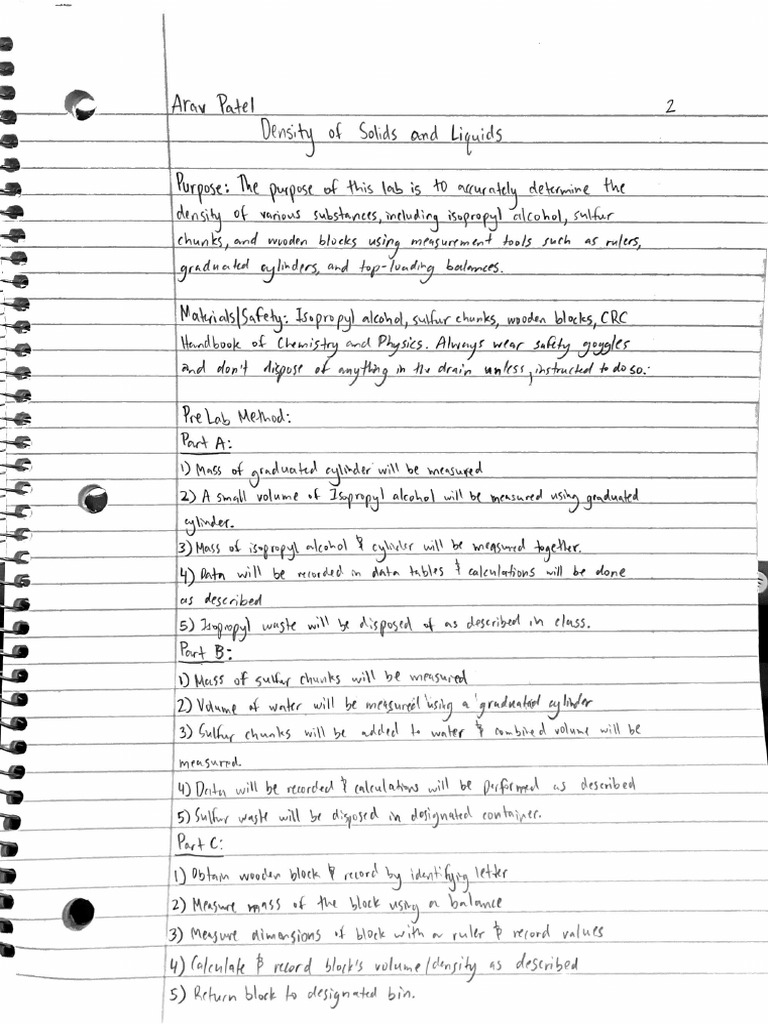 Arav Patel 2
Density of Solids and Liquids
Purpose: The purpose of this lab is to accurately determine the
density of various substances, including isopropyl alcohol, sulfur
chunks, and wooden blocks using measurement tools such as rulers,
graduated cylinders, and top-loading balances.
Materials/Safety: Isopropyl alcohol, sulfur chunks, wooden blocks, CRC
Handbook of Chemistry and Physics. Always wear safety goggles
and don't dispose of anything in the drain unless, instructed to do so.
PreLab Method:
Part A:
1) Mass of graduated cylinder will be measured
2) A small volume of Isopropyl alcohol will be measured using graduated
cylinder.
3) Mass of isopropyl alcohol & cylinder will be measured together.
4) Data will be recorded in data tables & calculations will be done
as described
5) Isopropyl waste will be disposed of as described in class.
Part B:
1) Mass of sulfur chunks will be measured
2) Volume of water will be measured using a graduated cylinder
3) Sulfur chunks will be added to water & combined volume will be
measured.
4) Data will be recorded & calculations will be performed as described
5) Sulfur waste will be disposed in designated container.
Part C:
1) Obtain wooden block & record by identifying letter
2) Measure mass of the block using a balance
3) Measure dimensions of block with a ruler & record values
4) Calculate & record block's volume/density as described
5) Return block to designated bin.